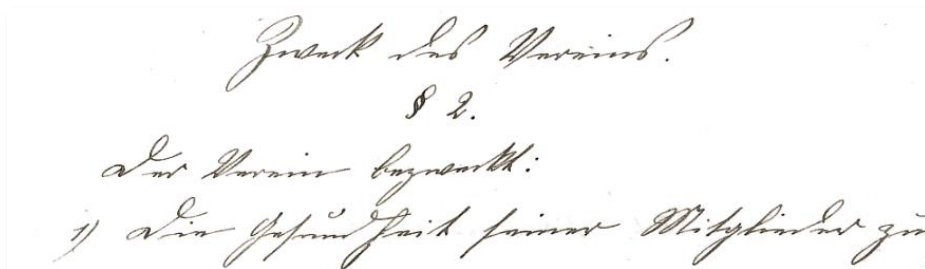 Zweck des Vereins.
§ 2.
Der Verein bezweckt:
1) Die Gesundheit seiner Mitglieder zu